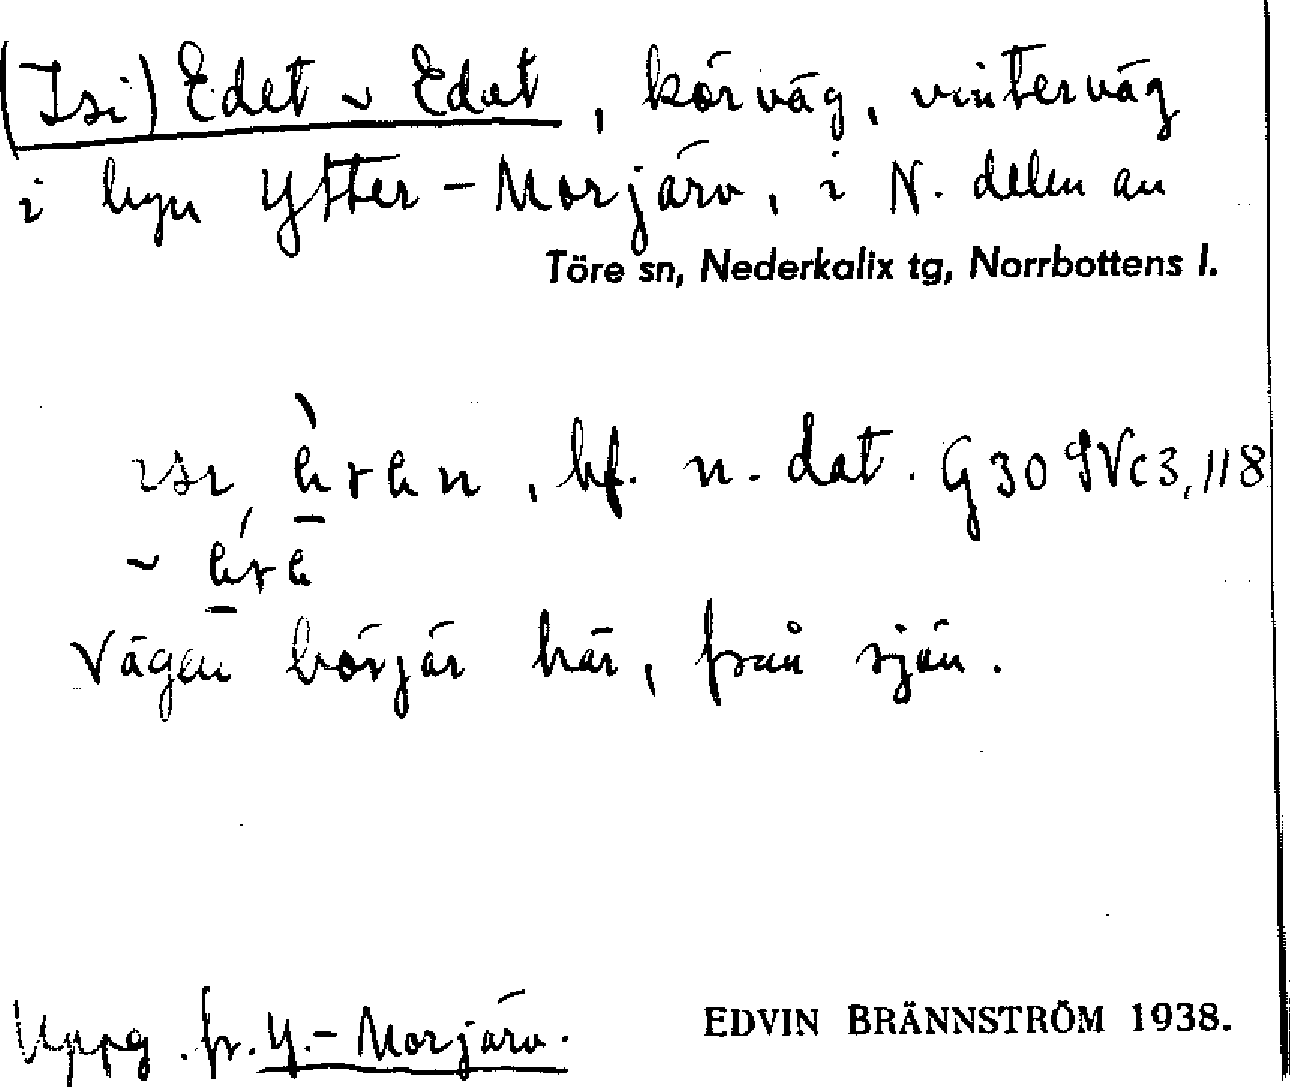 (Isi) Edet ~ Edat, körväg, vinterväg
i byn Ytter-Morjärv, i N. delen av
Töre sn, Nederkalix tg, Norrbottens l.
bf. n. dat. G30 IVc3, 118
~
Vägen börjar här, från sjön.
Uppg. fr. Y.-Morjärv.
EDVIN BRÄNNSTRÖM 1938.